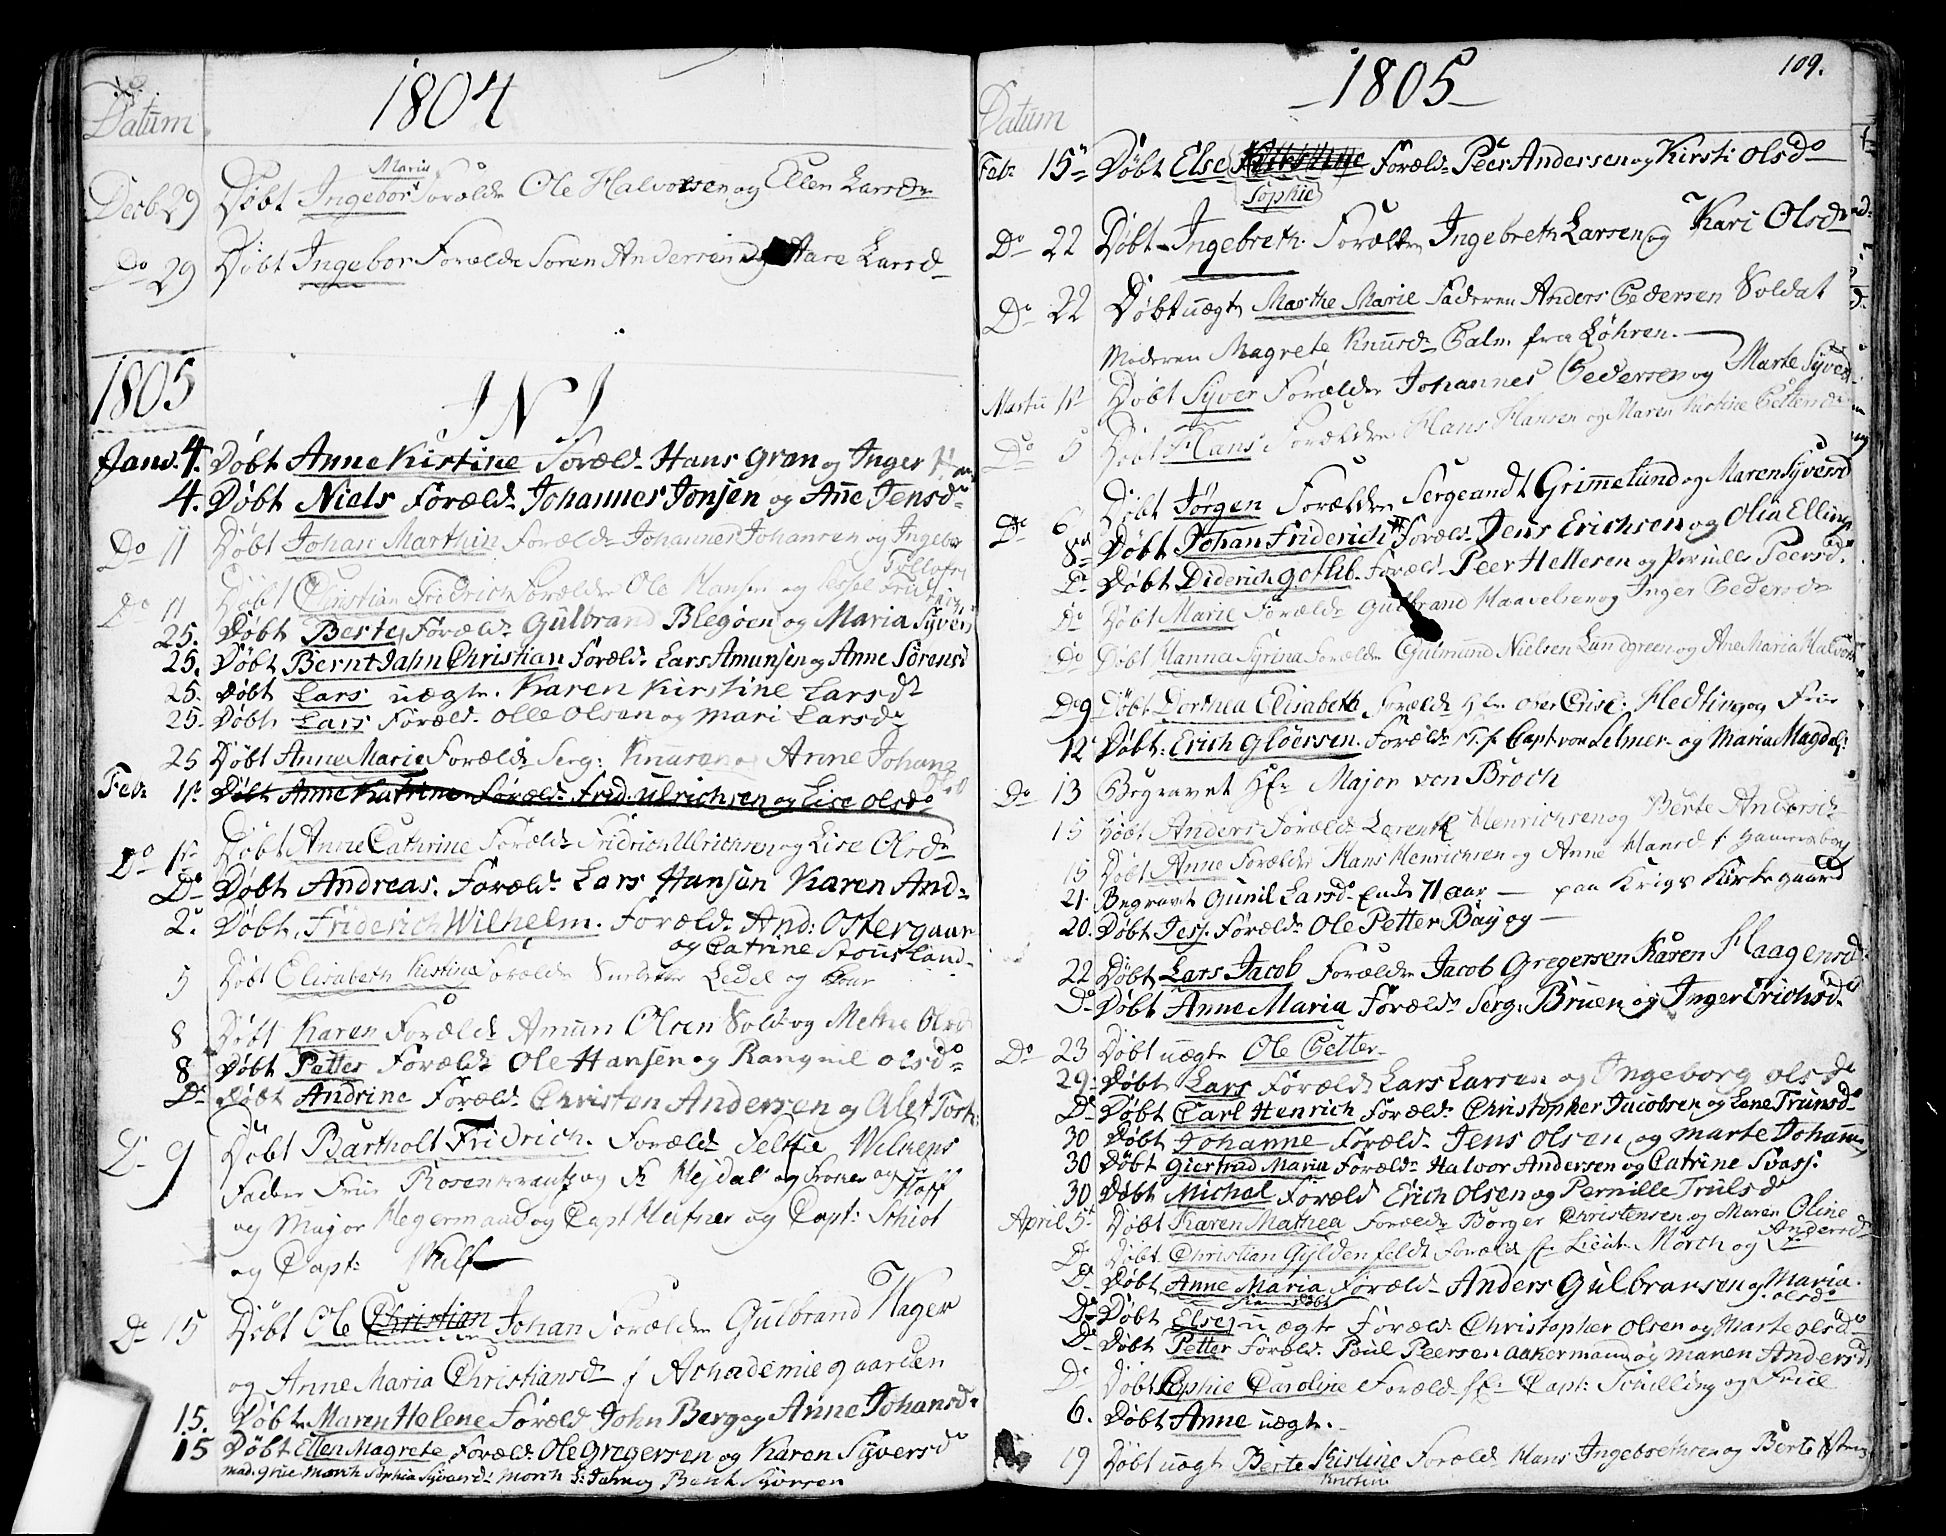 1804
Datum
Maria
Decb 29 Døbt Ingebor Forældr Ole Halvorsen og Ellen Larsdr
Do 29 Døbt Ingebor Forældr Soren Andersen og Larsd
1805
I N J
Janv. 4. Døbt Anne Kirstine Foræld. Hans Gran og Inger
4. Døbt Niels Foræld. Johannes Jonsen og Ane Jensdr
Do 11 Døbt Johan Marthin Foræld. Johannes Johansen og Ingebor
Tollefs
Do 11 Døbt Christian Fridrich Forældre Ole Hansen og
25. Døbt Berte Foræld. Gulbrand Blegøen og Maria Syvers
25. Døbt Bernt Jahn Christian Foræld. Lars Amunsen og Anne Sørensd
25. Døbt Lars uægte. Karen Kirstine Larsdr
25. Døbt Lars Foræld. Olle Olsen og Mari Larsdr
25 Døbt Anne Marie Foræld. Serg: Knusen og Anne Johan
Febr 1st Døbt Anne Katrine Foræld. Frid. Ulrichsen og Lise Olsdr
Do 1st Døbt Anne Cathrine Foræld. Fridrich Ulrichsen og Lise Olsdr
Do Døbt Andreas. Foræld. Lars Hansen Karen And=
2. Døbt Friderich Wilhelm. Foræld. And: Ostergaar
og Catrine Stousland
5 Døbt Elisabeth Kistine Forældr Ledel og
8 Døbt Karen Foræld. Amun Olsen Sold. og Mette Olsd
8 Døbt Petter Foræld. Ole Hansen og Rangnil Olsdr
Do Døbt Andrine Foræld. Christen Andersen og Alet Torst:
Do 9 Døbt Bartholt Fridrich. Foræld. Wilhems
Fadder Frue Rosenkrantz og Fr Hejdal og Froken Hoff
og Major Hegermand og Capt Heftner og Capt: Schiøt
og Capt: Wulf
Do 15 Døbt Ole Christian Johan Forældr Gulbrand Hagen
og Anne Maria Christiansdr f Achademiegaarden
15. Døbt Maren Helene Foræld. John Berg og Anne Johansd.
15 Døbt Ellen Magrete Foræld. Ole Gregersen og Karen Syversd
1805
109.
Datum
Febr 15 Døbt Else Kirstine Foræld. Peer Andersen og Kirsti Olsdr
Sophie
Do 22 Døbt Ingebreth. Forældre Ingebreth Larsen og Kari Olsdr
Do 22 Døbt uægte Marthe Marie Faderen Anders Pedersen Soldat
Moderen Magrete Knusdr Palm fra Løhren.
Martii 1st Døbt Syver Forældre Johannes Pedersen og Marte Syvers
Do 5 Døbt Hans Forældre Hans Hansen og Maren Kirstine Petters
Døbt Jørgen Forældre Sergeandt Grimmelund og Maren Syversd
Do 6 Døbt Johan Friderich Foræld. Jens Erichsen og Olia Ellings
8 Do Døbt Diderich Gotlib. Foræld. Peer Hellesen og Pernille Peersd.
Do Døbt Marie Forældr Gulbrand Haavelsen og Inger Pedersdr
Do Døbt Hanna Syrina Forældr Gulmund Nielsen Lundgreen og Ane Maria Halvors
Do 9 Døbt Dorthea Elisabeth Forældr Hr. Over Krist: Fledting og Frue
12 Døbt: Erich Gløersen. Foræld. Capt von Selmer og Maria Magdal:
Do 13 Begravet Hr. Major von Broch
15 Døbt Anders Foræld. Lorentz Henrichsen og Berte Andersdr
15 Døbt Anne Forældre Hans Henrichsen og Anne Hansd f Hamersborg
21. Begravet Gunil Larsdr Enke 71 aar — paa Krigs Kirkegaard
20. Døbt Jess. Foræld. Ole Petter Bay og —
22 Døbt Lars Jacob Forældre Jacob Gregersen Karen Haagensd
Do Døbt Anne Maria Foræld. Serg: Bruen og Inger Erichsd.
Do 23 Døbt uægte Ole Petter
29. Døbt Lars Forældr Lars Larsen og Ingeborg Olsdr
Do Døbt Carl Henrich Foræld. Christopher Jacobsen og Lene Trunsdr
30 Døbt Johanne Foræld. Jens Olsen og Marte Johann
30 Døbt Giertrud Maria Foræld. Halvor Andersen og Catrine Svass.
30 Døbt Michel Foræld Erich Olsen og Pernille Trulsdr
April 5. Døbt Karen Mathea Forældr Borger Christensen og Maren Oline
Andersdr
Do Døbt Christian Gyldenfeldt Foræld Hr. Lieut. Morth og Frue
Do Døbt Anne Maria Foræld. Anders Gulbransen og Maria
Olsdr
Do Døbt Else uægte Foræld. Christopher Olsen og Marte Olsdr
Do Døbt Petter Foræld. Poul Peersen Aakermand og Maren Andersd
Do Døbt Sophie Caroline Foræld Hr. Capt: Schilling og Frue
6. Døbt Anne uægte.
19 Døbt uægte Berte Kistine Foræld Hans Ingebrethsen og Berte
Kristine